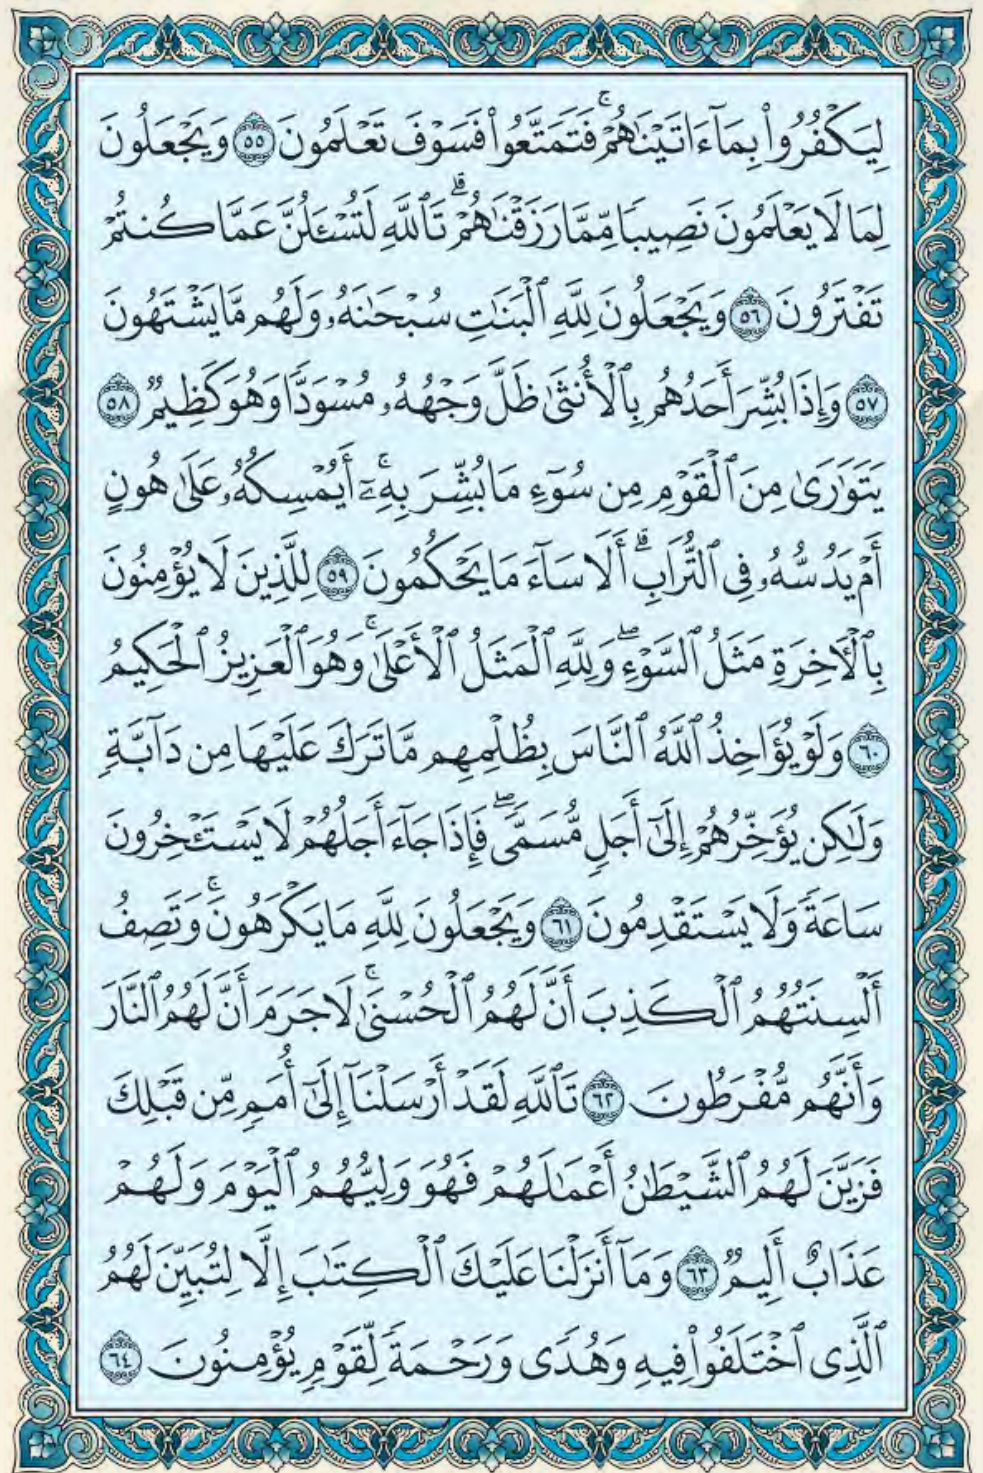 لِيَكْفُرُوا۟ بِمَآ ءَاتَيْنَٰهُمْ ۚ فَتَمَتَّعُوا۟ فَسَوْفَ تَعْلَمُونَ ٥٥ وَيَجْعَلُونَ
لِمَا لَا يَعْلَمُونَ نَصِيبًا مِّمَّا رَزَقْنَٰهُمْ ۗ تَٱللَّهِ لَتُسْـَٔلُنَّ عَمَّا كُنتُمْ
تَفْتَرُونَ ٥٦ وَيَجْعَلُونَ لِلَّهِ ٱلْبَنَٰتِ سُبْحَٰنَهُۥ وَلَهُم مَّا يَشْتَهُونَ
٥٧ وَإِذَا بُشِّرَ أَحَدُهُم بِٱلْأُنثَىٰ ظَلَّ وَجْهُهُۥ مُسْوَدًّا وَهُوَ كَظِيمٌ ٥٨
يَتَوَٰرَىٰ مِنَ ٱلْقَوْمِ مِن سُوٓءِ مَا بُشِّرَ بِهِۦٓ ۚ أَيُمْسِكُهُۥ عَلَىٰ هُونٍ
أَمْ يَدُسُّهُۥ فِى ٱلتُّرَابِ ۗ أَلَا سَآءَ مَا يَحْكُمُونَ ٥٩ لِلَّذِينَ لَا يُؤْمِنُونَ
بِٱلْـَٔاخِرَةِ مَثَلُ ٱلسَّوْءِ ۖ وَلِلَّهِ ٱلْمَثَلُ ٱلْأَعْلَىٰ ۚ وَهُوَ ٱلْعَزِيزُ ٱلْحَكِيمُ
٦٠ وَلَوْ يُؤَاخِذُ ٱللَّهُ ٱلنَّاسَ بِظُلْمِهِم مَّا تَرَكَ عَلَيْهَا مِن دَآبَّةٍ
وَلَٰكِن يُؤَخِّرُهُمْ إِلَىٰٓ أَجَلٍ مُّسَمًّى ۖ فَإِذَا جَآءَ أَجَلُهُمْ لَا يَسْتَـْٔخِرُونَ
سَاعَةً وَلَا يَسْتَقْدِمُونَ ٦١ وَيَجْعَلُونَ لِلَّهِ مَا يَكْرَهُونَ ۚ وَتَصِفُ
أَلْسِنَتُهُمُ ٱلْكَذِبَ أَنَّ لَهُمُ ٱلْحُسْنَىٰ ۚ لَا جَرَمَ أَنَّ لَهُمُ ٱلنَّارَ
وَأَنَّهُم مُّفْرَطُونَ ٦٢ تَٱللَّهِ لَقَدْ أَرْسَلْنَآ إِلَىٰٓ أُمَمٍ مِّن قَبْلِكَ
فَزَيَّنَ لَهُمُ ٱلشَّيْطَٰنُ أَعْمَٰلَهُمْ فَهُوَ وَلِيُّهُمُ ٱلْيَوْمَ وَلَهُمْ
عَذَابٌ أَلِيمٌ ٦٣ وَمَآ أَنزَلْنَا عَلَيْكَ ٱلْكِتَٰبَ إِلَّا لِتُبَيِّنَ لَهُمُ
ٱلَّذِى ٱخْتَلَفُوا۟ فِيهِ وَهُدًى وَرَحْمَةً لِّقَوْمٍ يُؤْمِنُونَ ٦٤